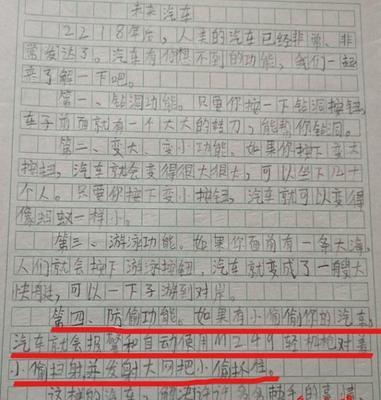 未来汽车
2218年后，人类的汽车已经非常、非
常发达了。汽车有你想不到的功能，我们一起
来了解一下吧。
第一、钻洞功能。只要你按一下钻洞按钮，
车子前面就有一个大大的转刀，能帮你钻洞。
第二、变大、变小功能。如果你按下变大
按钮，汽车就会变得很大很大，可以坐下几十
个人。只要你按下变小按钮，汽车就可以变得
像蚂蚁一样小。
第三、游泳功能。如果你面前有一条大海，
人们就会按下游泳按钮，汽车就变成了一艘大
快艇，可以一下子游到对岸。
第四、防偷功能。如果有小偷偷你的汽车，
汽车就会报警和自动使用M249轻机枪对着
小偷扫射并发射大网把小偷抓住。
这样的汽车，解决许许多多